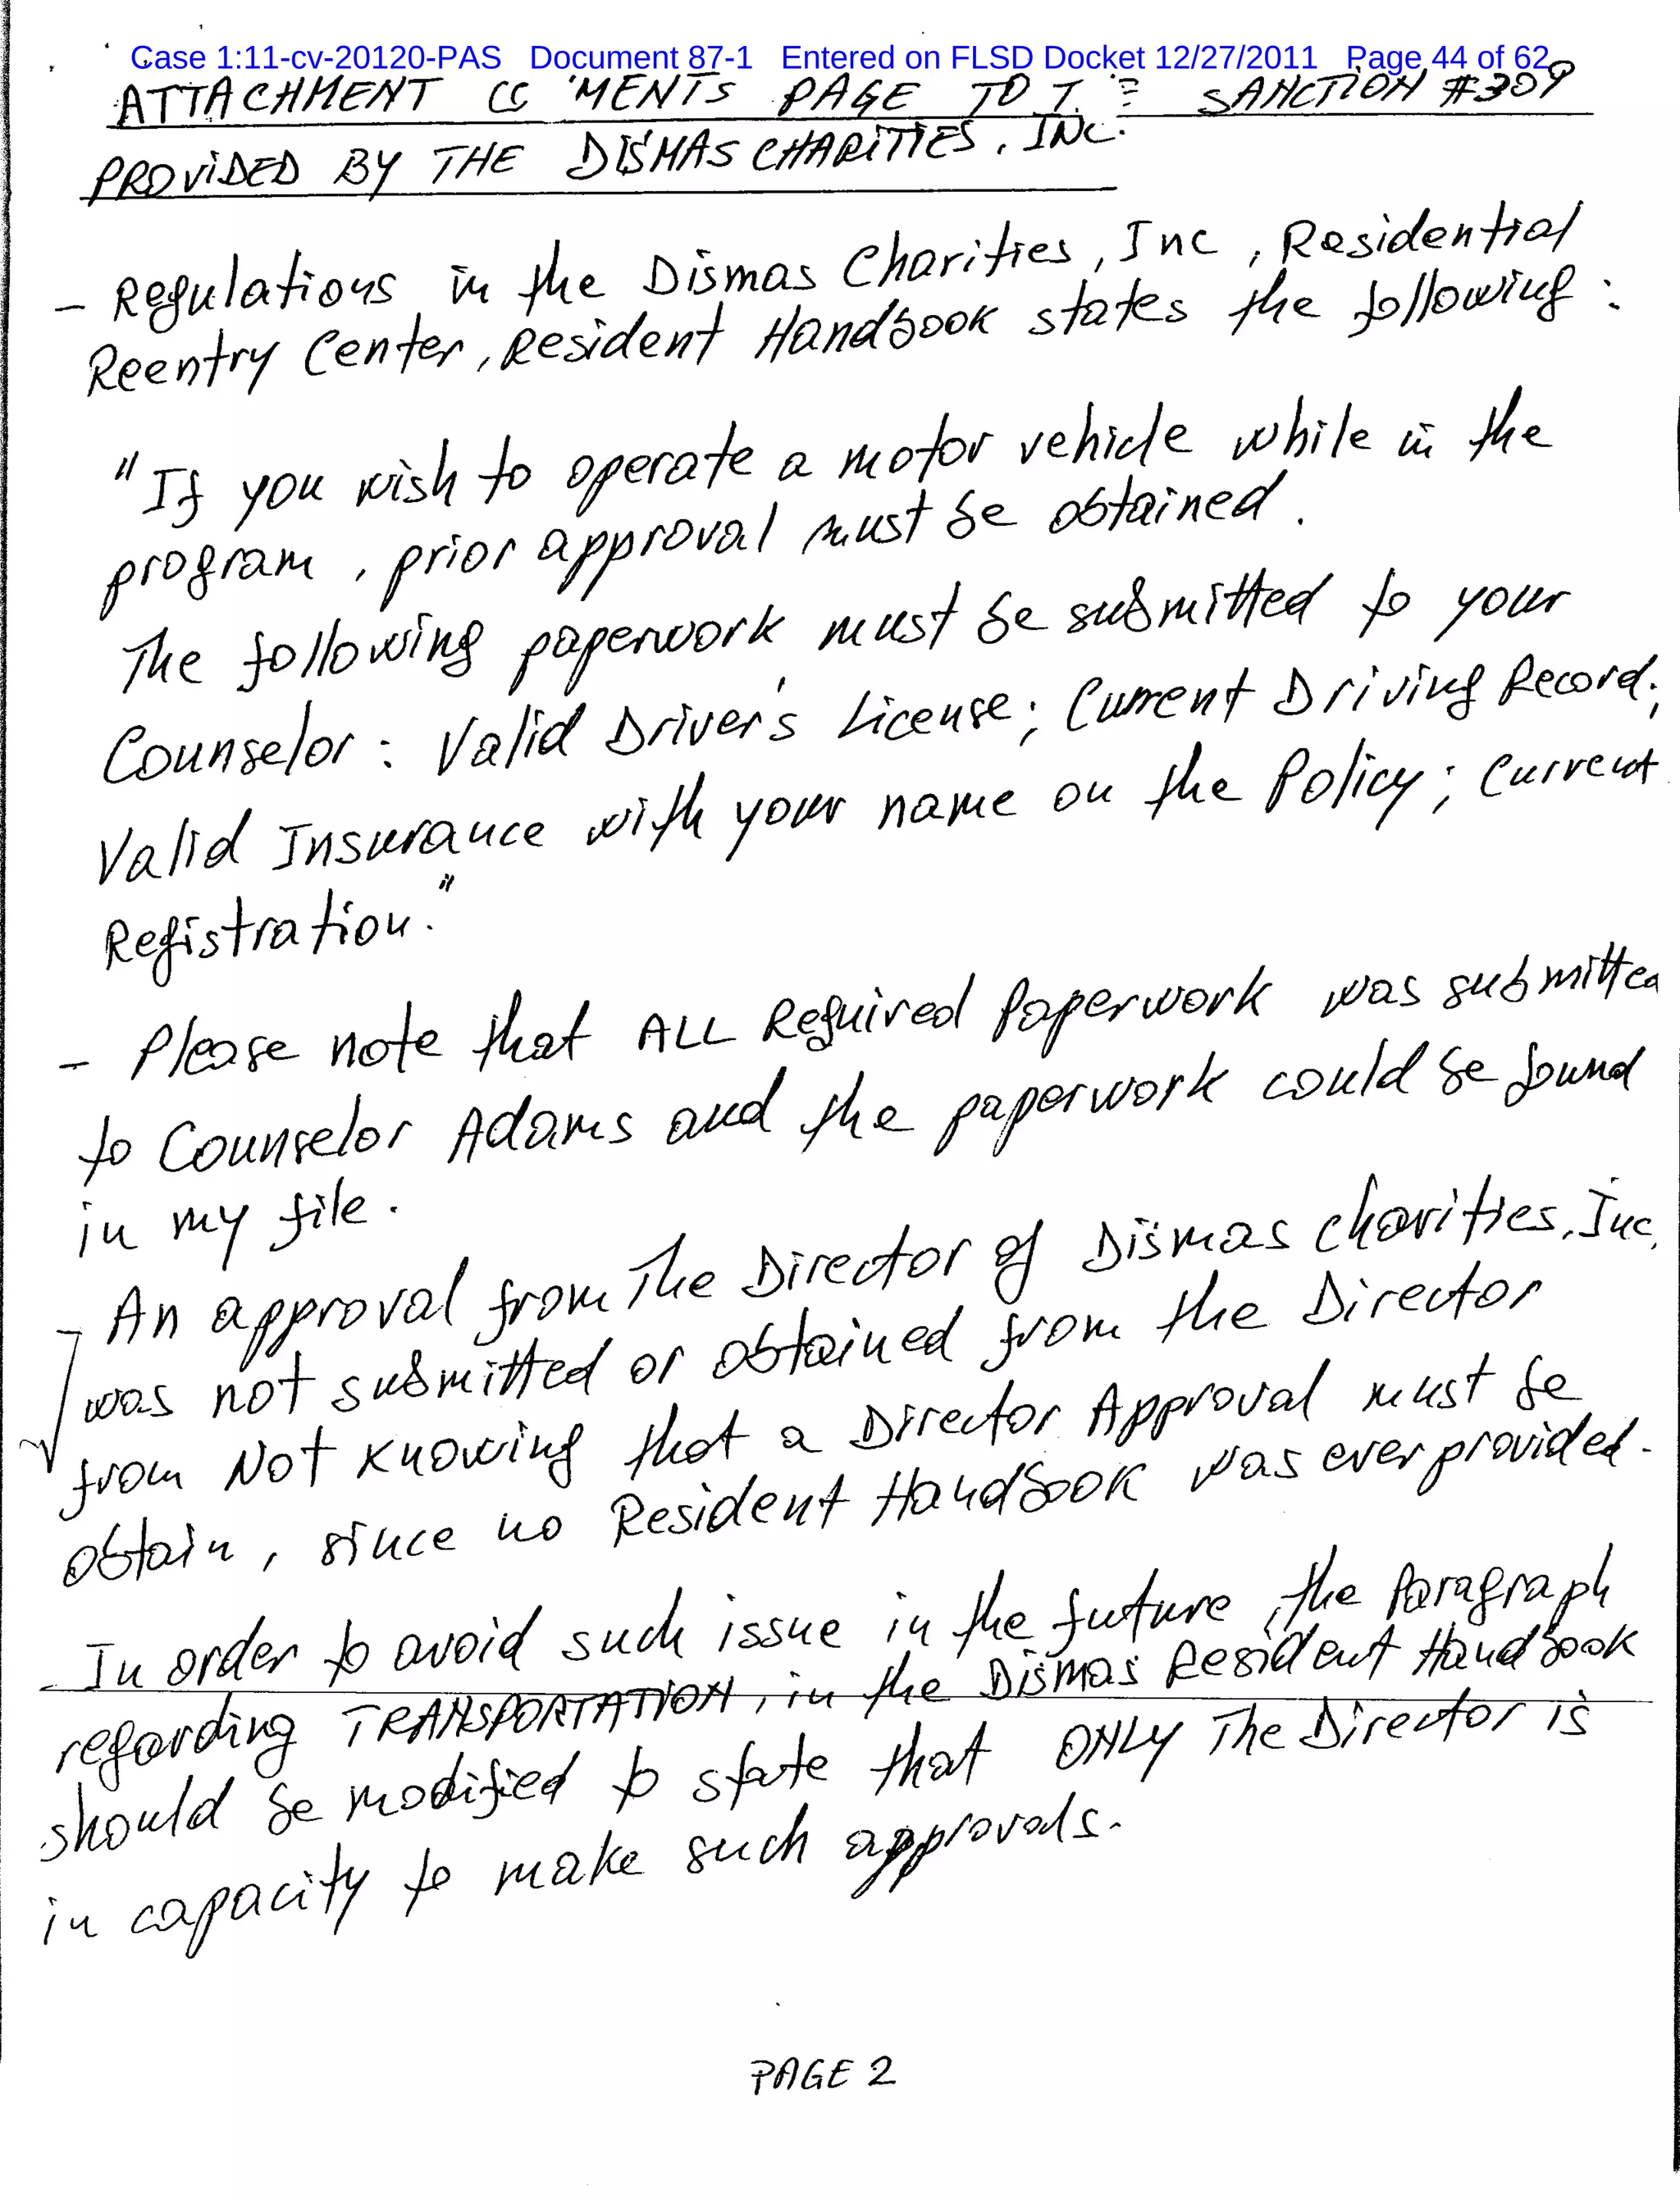 Case 1:11-cv-20120-PAS Document 87-1 Entered on FLSD Docket 12/27/2011 Page 44 of 62
ATTACHMENT PAGE TO SANCTION #309
PROVIDED BY THE DISMAS CHARITIES, INC.
- Regulations in the Dismas Charities, Inc, Residential
Reentry Center, Resident Handbook states the following:
"If you wish to operate a motor vehicle while in the
program, prior approval must be obtained.
The following paperwork must be submitted to your
Counselor: Valid Driver's License; Current Driving Record;
Valid Insurance with your name on the Policy; Current
Registration."
- Please note that ALL Required Paperwork was submitted
to Counselor Adams and the paperwork could be found
in my file.
- An approval from The Director of Dismas Charities, Inc.
was not submitted or obtained from the Director
from Not Knowing that a Director Approval must be
obtain, since no Resident Handbook was ever provided.
- In order to avoid such issue in the future, the Paragraph
regarding TRANSPORTATION, in the Dismas Resident Handbook
should be modified to state that ONLY The Director is
in capacity to make such approvals.
PAGE 2